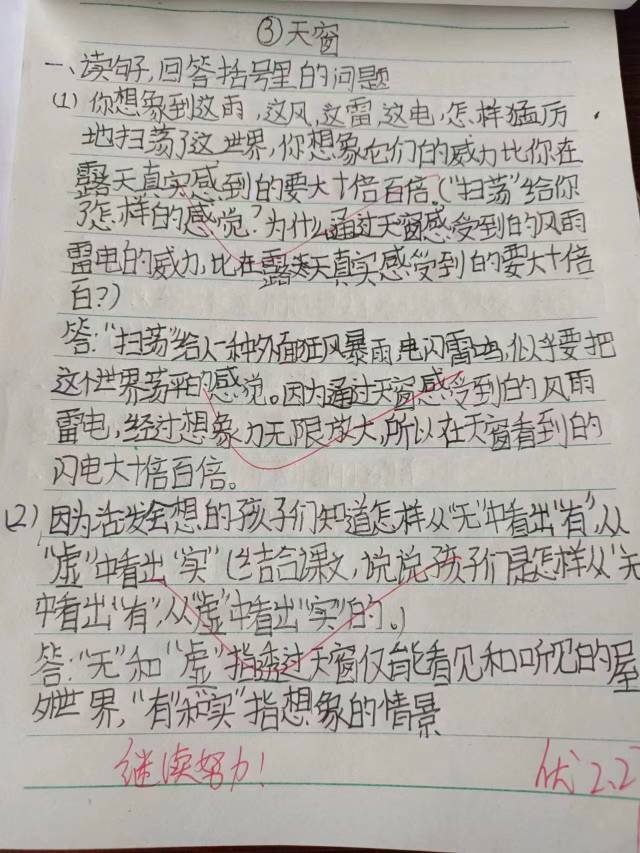 ③天窗
一、读句子,回答括号里的问题
(1) 你想象到这雨,这风,这雷,这电,怎样猛厉
地扫荡了这世界,你想象它们的威力比你在
露天真实感到的要大十倍百倍。(“扫荡”给你
了怎样的感觉?为什么通过天窗感受到的风雨
雷电的威力,比在露天真实感受到的要大十倍
百?)
答:“扫荡”给人一种外面狂风暴雨,电闪雷鸣,似乎要把
这个世界荡平的感觉。因为通过天窗感受到的风雨
雷电,经过想象力无限放大,所以在天窗看到的
闪电大十倍百倍。
(2) 因为活发会想的孩子们知道怎样从“无”中看出“有”,从
“虚”中看出“实”(结合课文,说说孩子们是怎样从“无
中看出“有”,从“虚”中看出“实”的。)
答:“无”和“虚”指透过天窗仅能看见和听见的屋
外世界,“有”和“实”指想象的情景
继续努力!
优 2.2